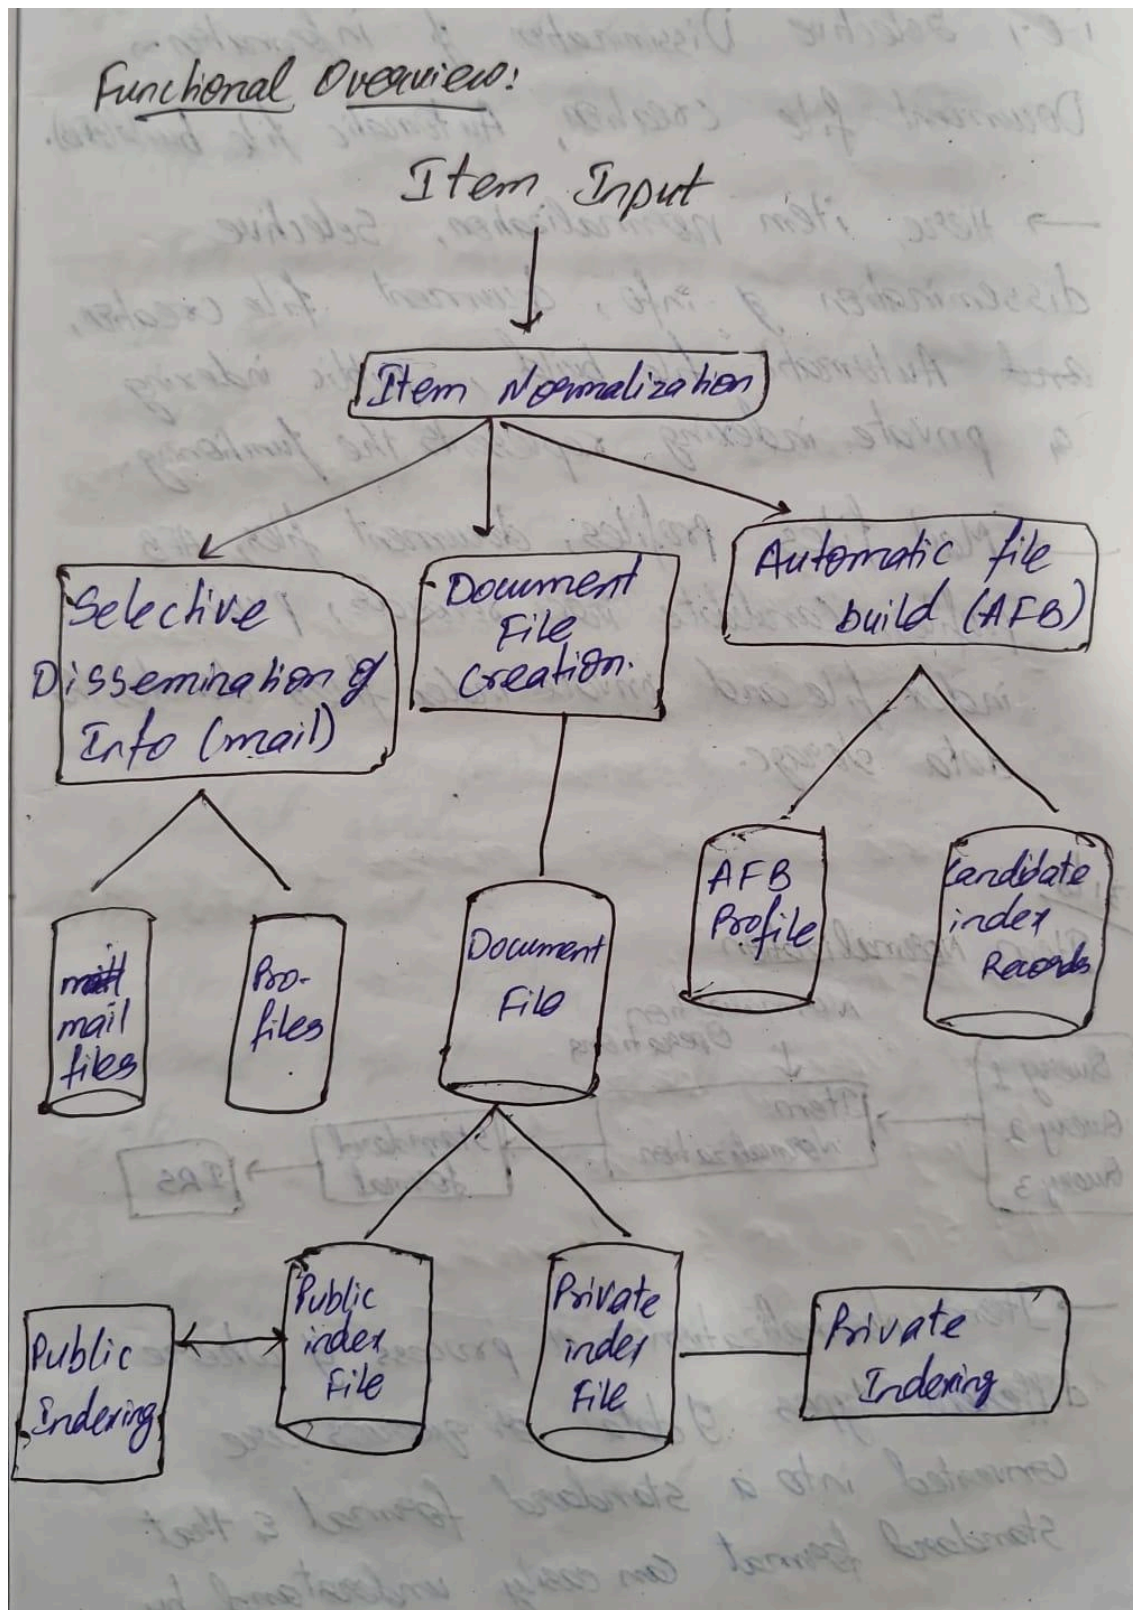 Functional Overview:
Item Input
Item Normalization
Selective
Dissemination of
Info (mail)
Document
File
Creation.
Automatic file
build (AFB)
mail
files
Pro-
files
Document
File
AFB
Profile
Candidate
index
Records
Public
Indexing
Public
index
File
Private
index
File
Private
Indexing